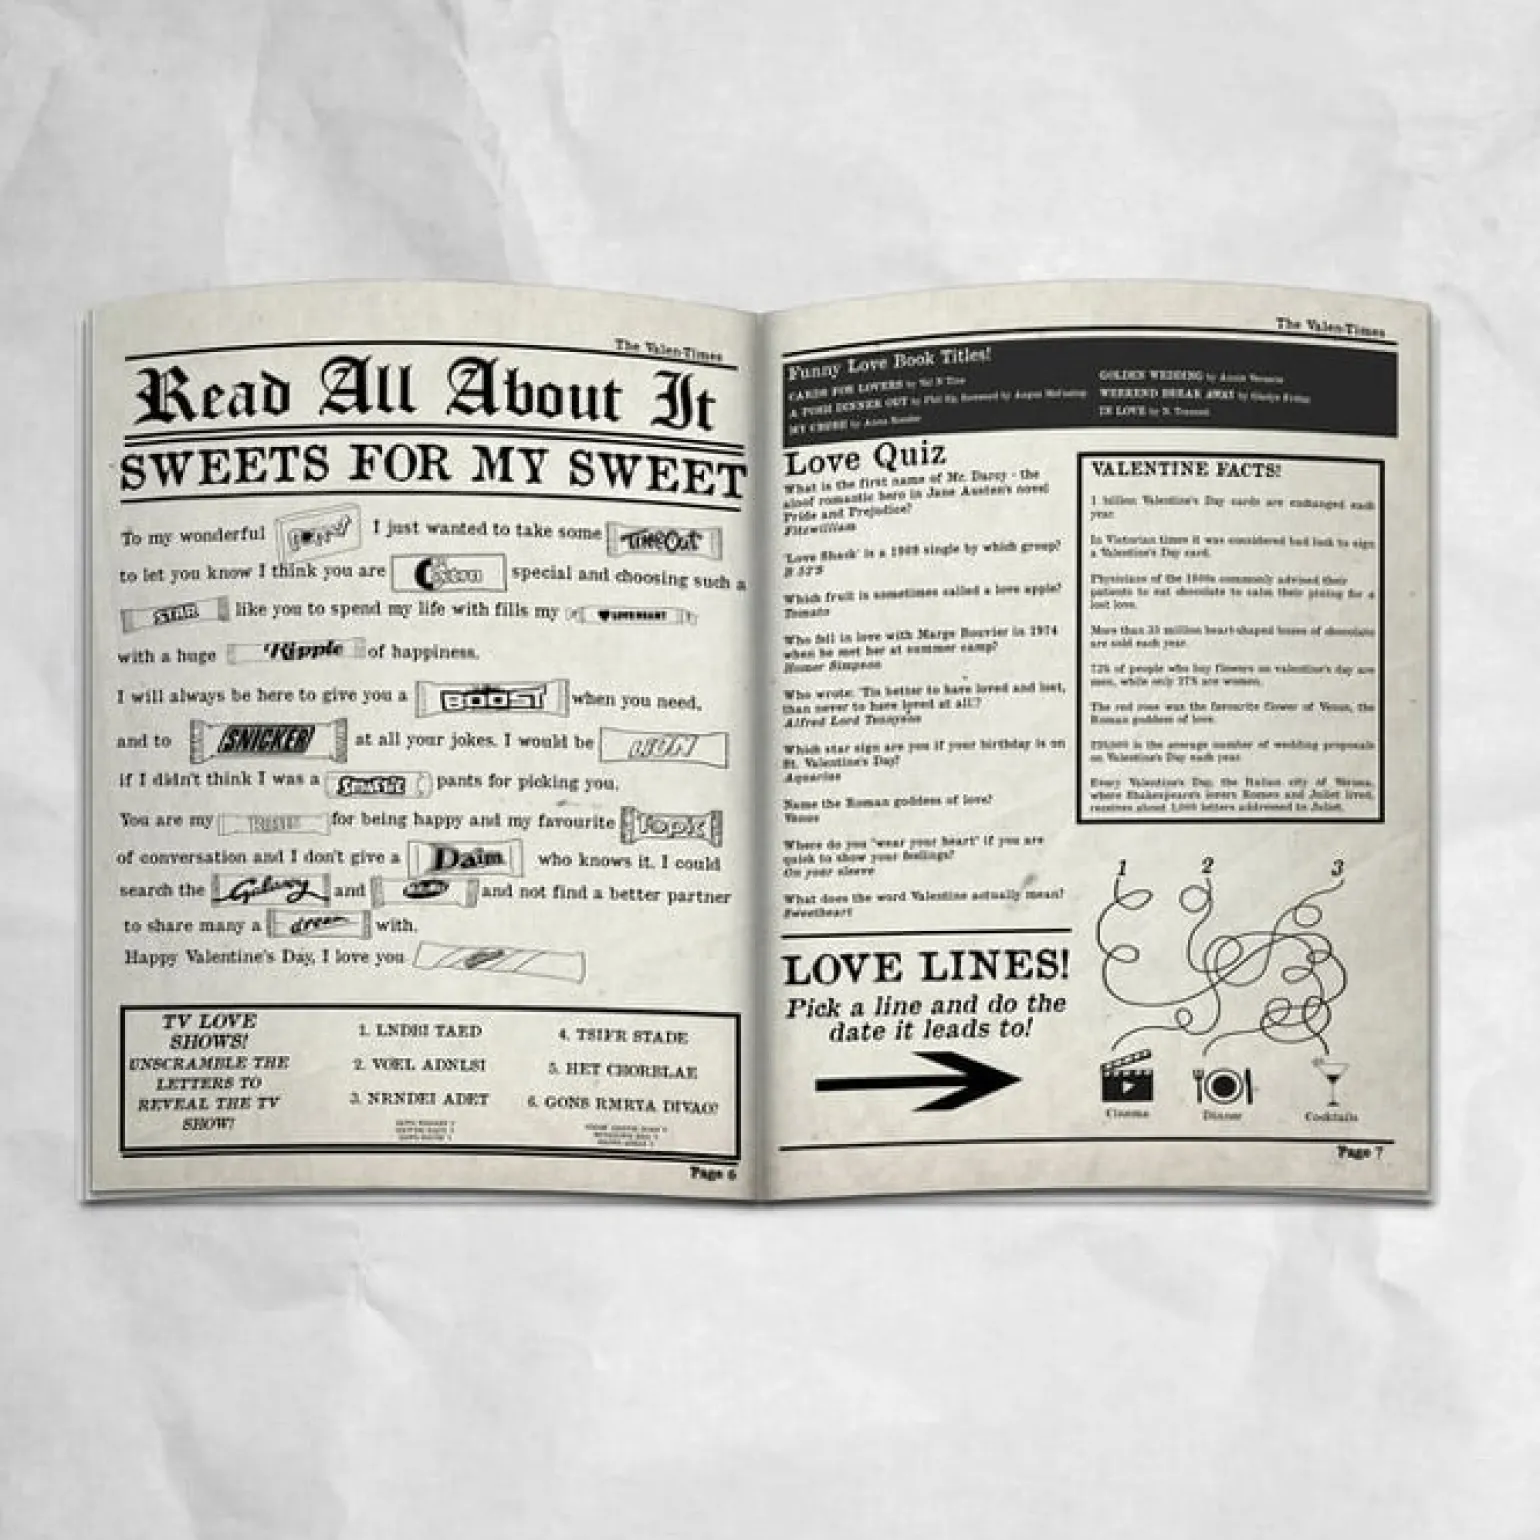 The Valen-Times
Read All About It
SWEETS FOR MY SWEET
To my wonderful I just wanted to take some TimeOut
to let you know I think you are Extra special and choosing such a
STAR like you to spend my life with fills my LOVEHEART
with a huge Ripple of happiness.
I will always be here to give you a BOOST when you need,
and to SNICKER at all your jokes. I would be LION
if I didn't think I was a pants for picking you.
You are my for being happy and my favourite Topic
of conversation and I don't give a Daim who knows it. I could
search the Galaxy and and not find a better partner
to share many a dream with.
Happy Valentine's Day, I love you
TV LOVE
SHOWS!
UNSCRAMBLE THE
LETTERS TO
REVEAL THE TV
SHOW!
1. LNDBI TAED
2. VOEL ADNLSI
3. NRNDEI ADET
4. TSIFR STADE
5. HET CHORBLAE
6. GONS RMRYA DIVAO?
Page 6
The Valen-Times
Funny Love Book Titles!
CARDS FOR LOVERS by Val N Tine
A POSH DINNER OUT by Phil Up, foreword by Angus McFasting
MY CRUSH by
GOLDEN WEDDING by Annie Versary
WEEKEND BREAK AWAY by Gladys Friday
IN LOVE by
Love Quiz
What is the first name of Mr. Darcy - the
aloof romantic hero in Jane Austen's novel
Pride and Prejudice?
Fitzwilliam
'Love Shack' is a 1989 single by which group?
B 52'S
Which fruit is sometimes called a love apple?
Tomato
Who fell in love with Marge Bouvier in 1974
when he met her at summer camp?
Homer Simpson
Who wrote: 'Tis better to have loved and lost,
than never to have loved at all'?
Alfred Lord Tennyson
Which star sign are you if your birthday is on
St. Valentine's Day?
Aquarius
Name the Roman goddess of love?
Venus
Where do you "wear your heart" if you are
quick to show your feelings?
On your sleeve
What does the word Valentine actually mean?
Sweetheart
VALENTINE FACTS!
1 billion Valentine's Day cards are exchanged each
year.
In Victorian times it was considered bad luck to sign
a Valentine's Day card.
Physicians of the 1800s commonly advised their
patients to eat chocolate to calm their pining for a
lost love.
More than 35 million heart-shaped boxes of chocolate
are sold each year.
73% of people who buy flowers on valentine's day are
men, while only 27% are women.
The red rose was the favourite flower of Venus, the
Roman goddess of love.
220,000 is the average number of wedding proposals
on Valentine's Day each year.
Every Valentine's Day, the Italian city of Verona,
where Shakespeare's lovers Romeo and Juliet lived,
receives about 1,000 letters addressed to Juliet.
LOVE LINES!
Pick a line and do the
date it leads to!
1
2
3
Cinema
Dinner
Cocktails
Page 7